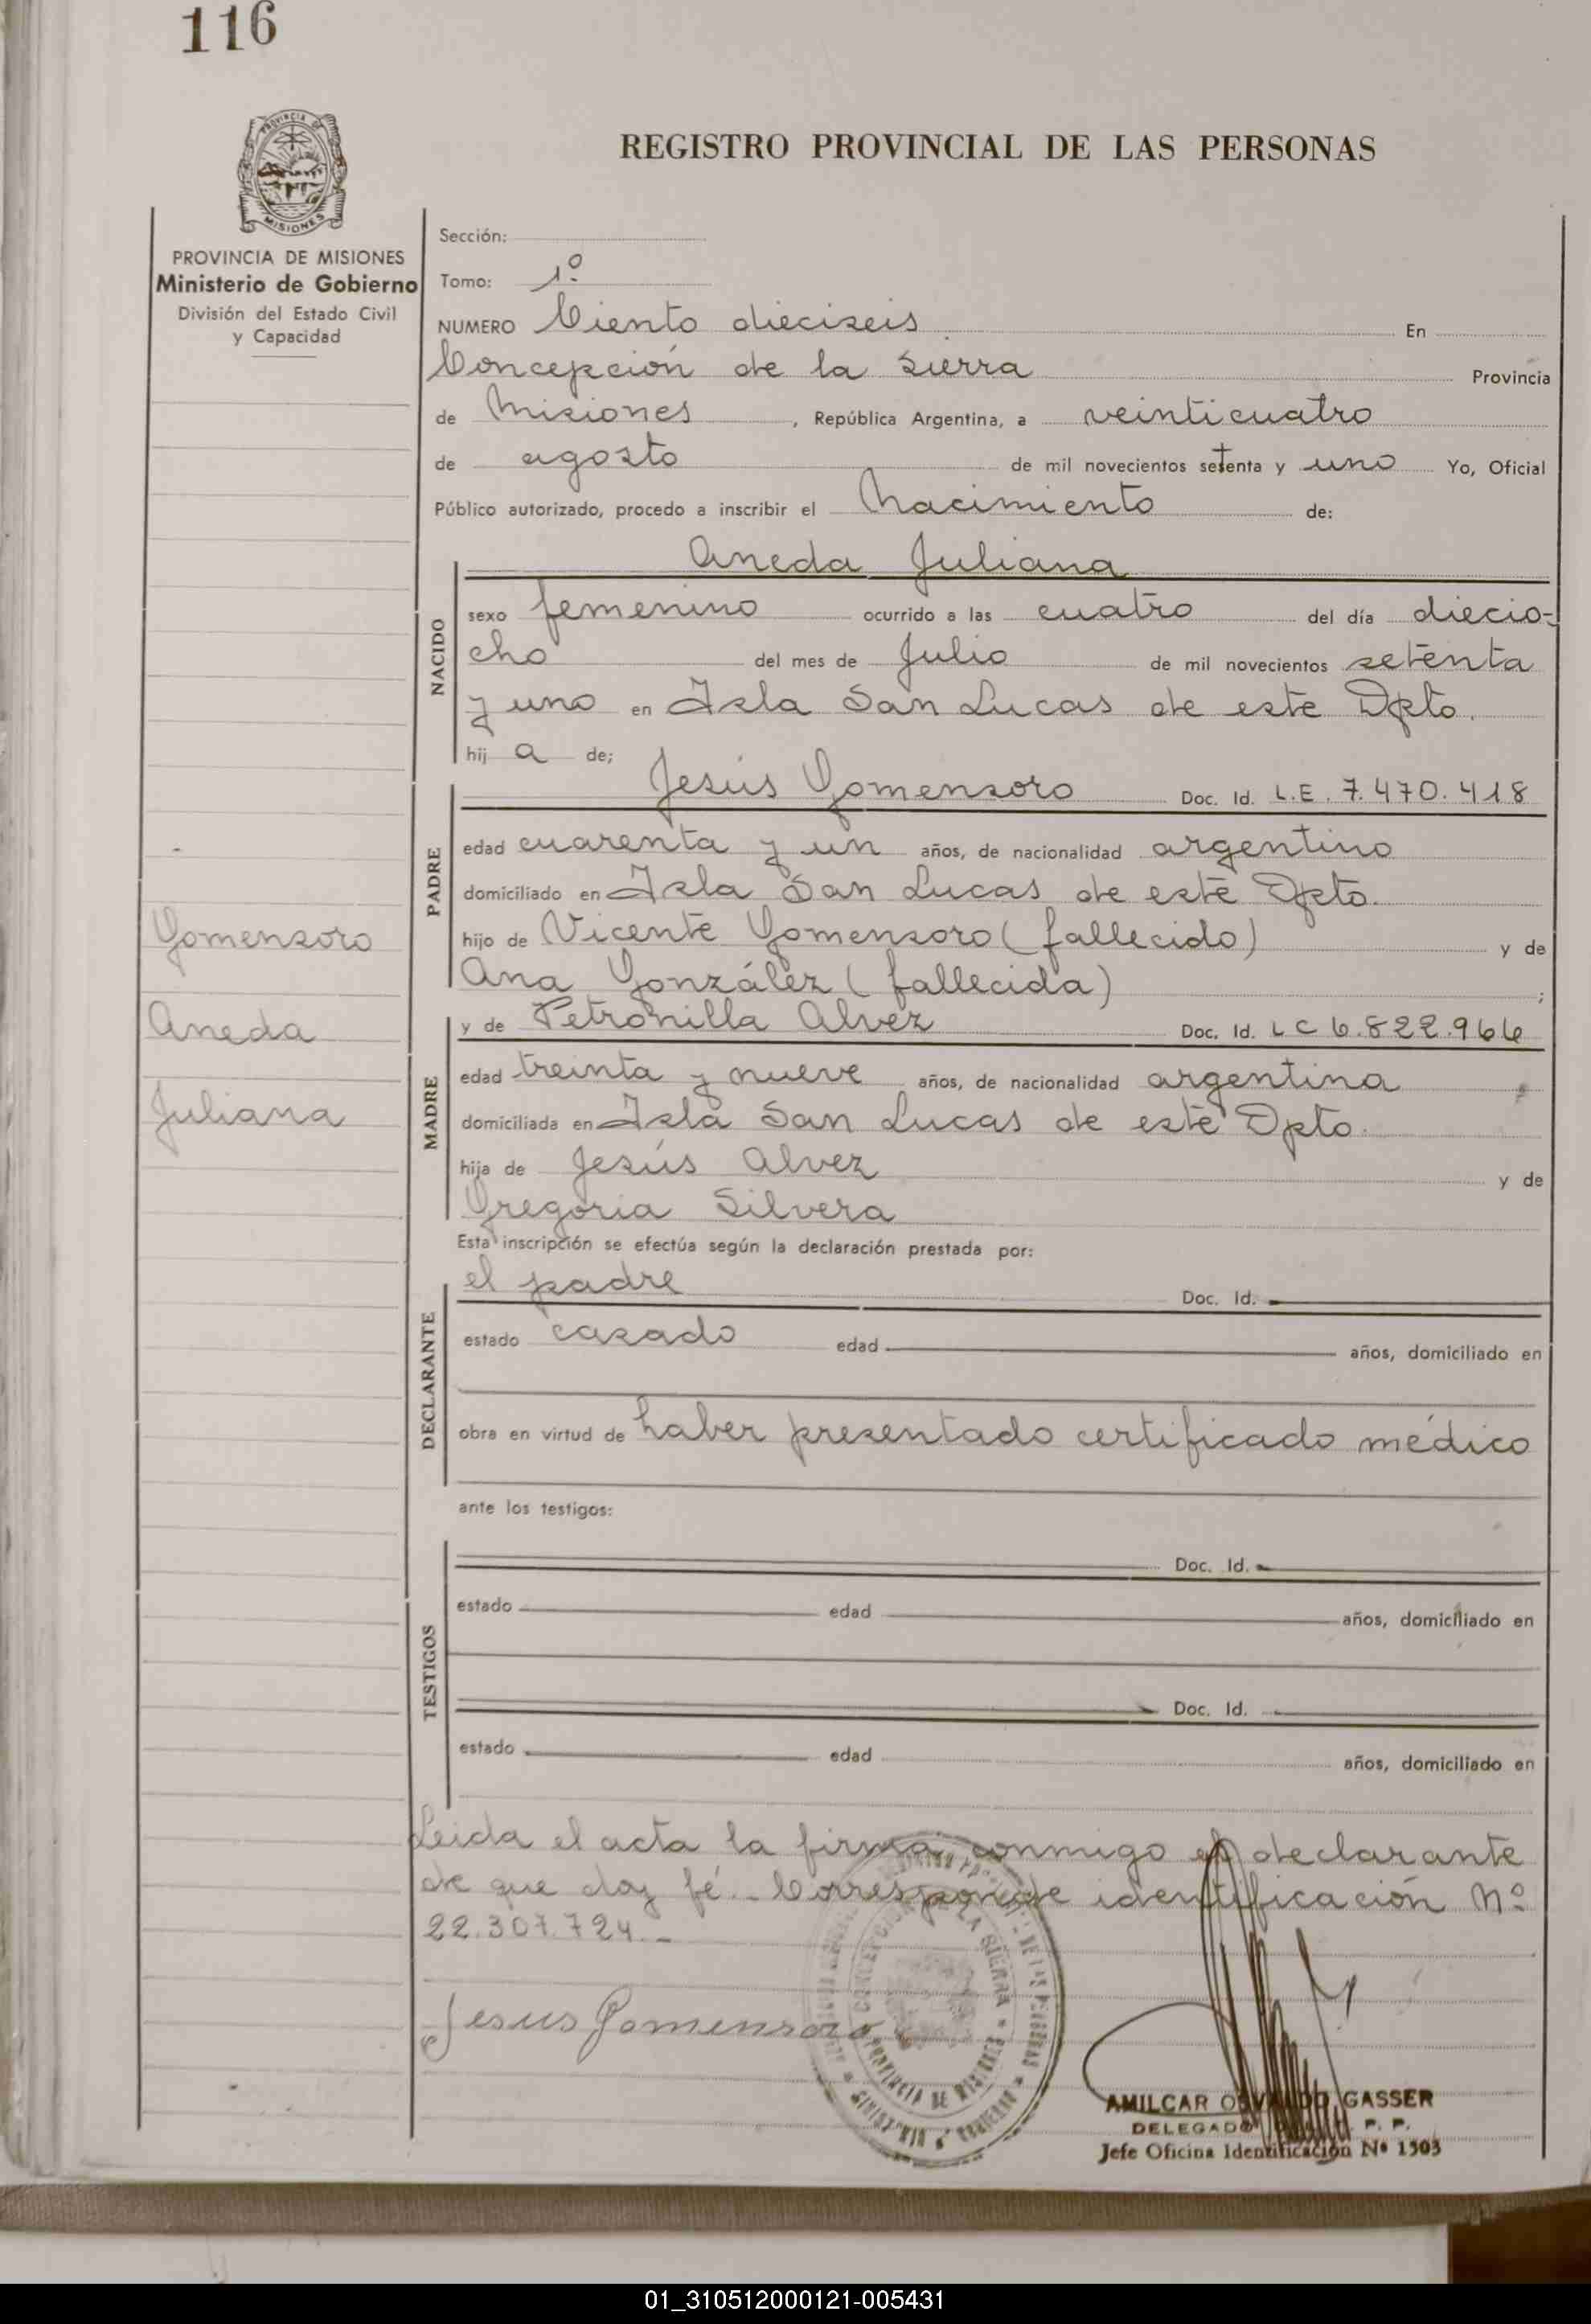 116
PROVINCIA DE
MISIONES
REGISTRO PROVINCIAL DE LAS PERSONAS
PROVINCIA DE MISIONES
Ministerio de Gobierno
División del Estado Civil
y Capacidad
Sección:
Tomo: 1º
NUMERO Ciento dieciseis En
Concepción de la Sierra Provincia
de Misiones, República Argentina, a veinticuatro
de agosto de mil novecientos setenta y uno Yo, Oficial
Público autorizado, procedo a inscribir el Nacimiento de:
NACIDO
Aneda Juliana
sexo femenino ocurrido a las cuatro del día diecio-
cho del mes de Julio de mil novecientos setenta
y uno en Isla San Lucas de este Dpto.
hij a de;
PADRE
Jesús Gomensoro Doc. Id. L.E. 7.470.418
edad cuarenta y un años, de nacionalidad argentino
domiciliado en Isla San Lucas de este Dpto.
hijo de Vicente Gomensoro (fallecido) y de
Ana González (fallecida) ;
MADRE
y de Petronilla Alvez Doc. Id. LC 6.822.966
edad treinta y nueve años, de nacionalidad argentina
domiciliada en Isla San Lucas de este Dpto.
hija de Jesús Alvez y de
Gregoria Silvera
Gomensoro
Aneda
Juliana
Esta inscripción se efectúa según la declaración prestada por:
DECLARANTE
el padre Doc. Id.
estado casado edad años, domiciliado en
obra en virtud de haber presentado certificado médico
ante los testigos:
TESTIGOS
Doc. Id.
estado edad años, domiciliado en
Doc. Id.
estado edad años, domiciliado en
Leida el acta la firma conmigo el declarante
de que doy fé._ Corresponde identificación Nº
22.307.724._
Jesus Gomensoro
CONCEPCION DE LA SIERRA
PROVINCIA DE MISIONES
AMILCAR OSVALDO GASSER
DELEGADO P. P.
Jefe Oficina Identificación Nº 1503
01_310512000121-005431